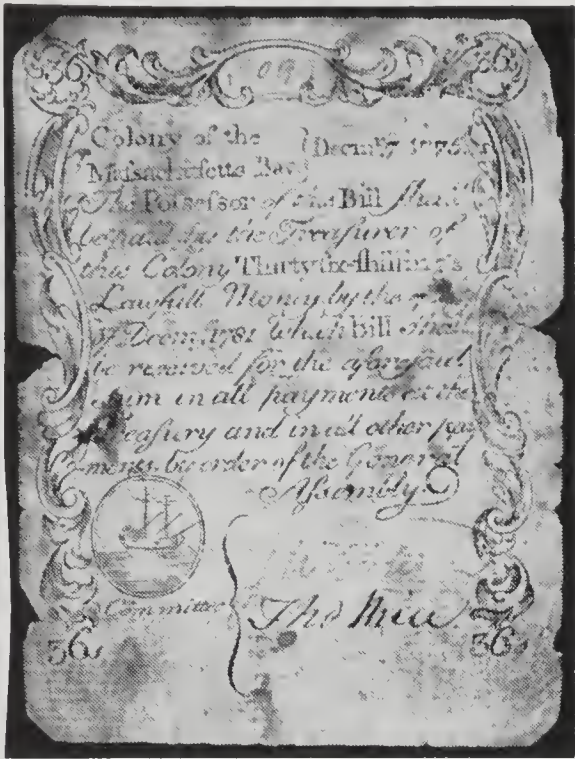 36s 36s
Colony of the
Massachusetts Bay } Decmr. 7 1775
The Possessor of this Bill shall
be paid by the Treasurer of
this Colony Thirty six shillings
Lawfull Money by the 7
of Decem. 1781 which Bill shall
be received for the aforesaid
sum in all payments at the
Treasury and in all other pay
ments by order of the General
Assembly.
Committee
Tho
36s 36s